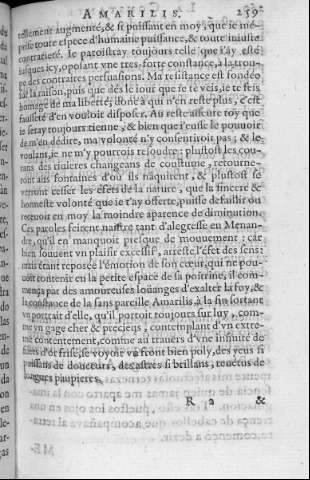 AMARILIS. 259
tellement augmenté, & si puissant en moy, que ie mé-
prise toute espece d'humaine puissance, & toute iniuste
contrarieté. Ie paroistray tousiours telle que i'ay esté
iusques icy, oposant vne tres-forte constance, à la trou-
pe des contraires persuasions. Ma resistance est fondée
sur la raison, puis que dés le iour que ie te veis, ie te feis
homage de ma liberté; donc à qui n'en reste plus, c'est
fausseté d'en vouloir disposer. Au reste asseure toy que
ie seray tousiours tienne, & bien que i'eusse le pouuoir
de m'en dédire, ma volonté n'y consentiroit pas; & le
voulant, ie ne m'y pourrois resoudre: plustost les cou-
rans des riuieres changeans de coustume, retourne-
ront aux fontaines d'où ils náquirent, & plustost se
verront cesser les éfets de la nature, que la sincere &
honneste volonté que ie t'ay offerte, puisse defaillir ou
receuoir en moy la moindre aparence de diminution.
Ces paroles feirent naistre tant d'alegresse en Menan-
dre, qu'il en manquoit presque de mouuement; car
bien souuent vn plaisir excessif, arreste l'éfet des sens:
mais étant reposée l'émotion de son cœur, qui ne pou-
uoit contenir en la petite espace de sa poitrine, il com-
mença par des amoureuses loüanges d'exalter la foy, &
la constance de la sans pareille Amarilis, à la fin sortant
vn portrait d'elle, qu'il portoit tousiours sur luy, com-
me vn gage cher & precieux, contemplant d'vn extre-
me contentement, comme au trauers d'vne infinité de
filets d'or frisé, se voyoit vn front bien poly, des yeux si
puissans de douceurs, des astres si brillans, reuétus de
longues paupieres,
R 2 &